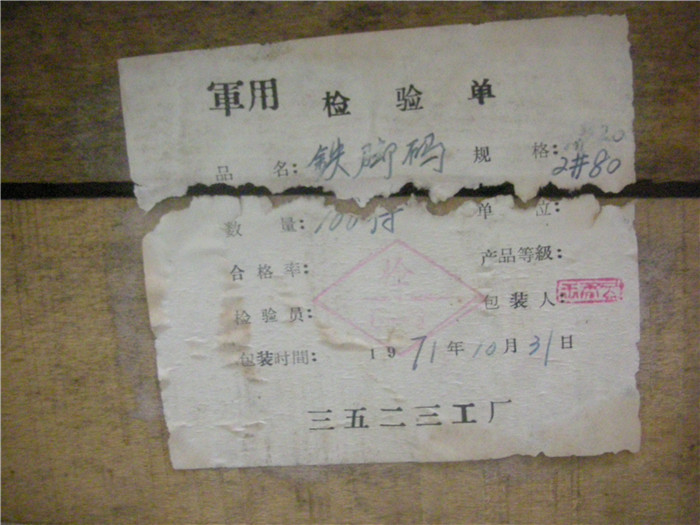 軍用 检验单
品名：铁脚码 规格：2#80
数量：100付 单位：
合格率： 产品等級：
检验员： 包装人：
包装时間： 1971年10月31日
三五二三工厂